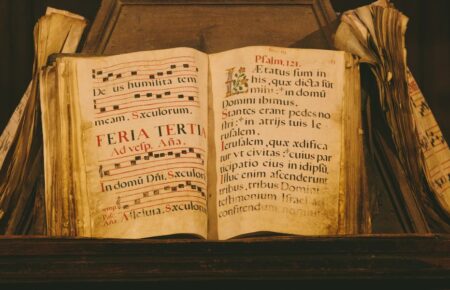 De us humilita tem
meam. Sæculorum.
FERIA TERTIA
Ad vesp. Aña.
In domū Dñi. Sæculorum.
Sæculorum.
Psalm. 121.
Lætatus sum in
his, quæ dicta sūt
mihi : * in domū
Domini ibimus.
Stantes erant pedes no
stri : * in atrijs tuis Ie
rusalem.
Ierusalem, quæ ædifica
tur vt civitas : * cuius par
ticipatio eius in idipsū.
Illuc enim ascenderunt
tribus, tribus Domini
testimonium Israel ad
confitendum nomini